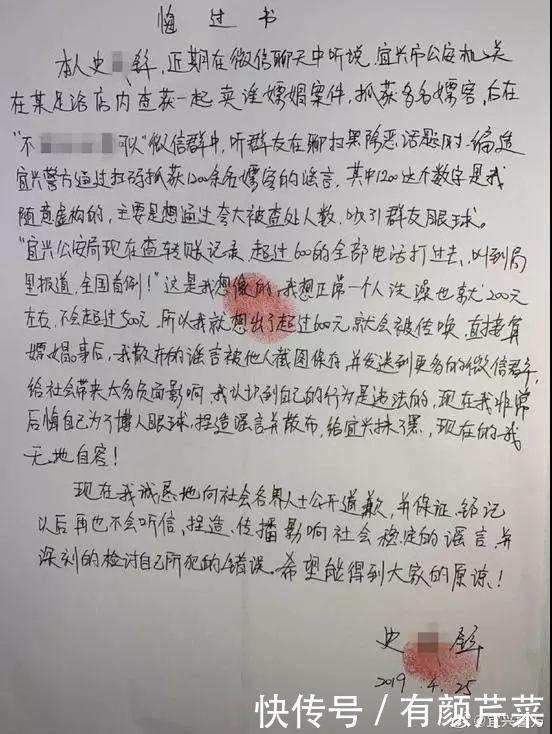 悔过书
本人史 鋅,近期在微信聊天中听说,宜兴市公安机关
在某足浴店内查获一起卖淫嫖娼案件,抓获多名嫖客,后在
"不 可以"微信群中,听群友在聊扫黑除恶话题时,编造
宜兴警方通过扫码抓获1200余名嫖客的谣言,其中1200这个数字是我
随意虚构的,主要是想通过夸大被查处人数,吸引群友眼球。
"宜兴公安局现在查转账记录,超过600的全部电话打过去,叫到局
里报道,全国首例!"这是我想像的,我想正常一个人洗澡也就200元
左右,不会超过500元,所以我就想出了超过600元,就会被传唤,直接算
嫖娼,事后,我散布的谣言被他人截图保存,并发送到更多的微信群,
给社会带来太多负面影响,我认识到自己的行为是违法的,现在我非常
后悔自己为了博人眼球,捏造谣言并散布,给宜兴抹了黑,现在的我
无地自容!
现在我诚恳地向社会各界人士公开道歉,并保证,铭记
以后再也不会听信、捏造、传播影响社会稳定的谣言,并
深刻的检讨自己所犯的错误。希望能得到大家的原谅!
史
2019.4.25
快传号/有颜芹菜